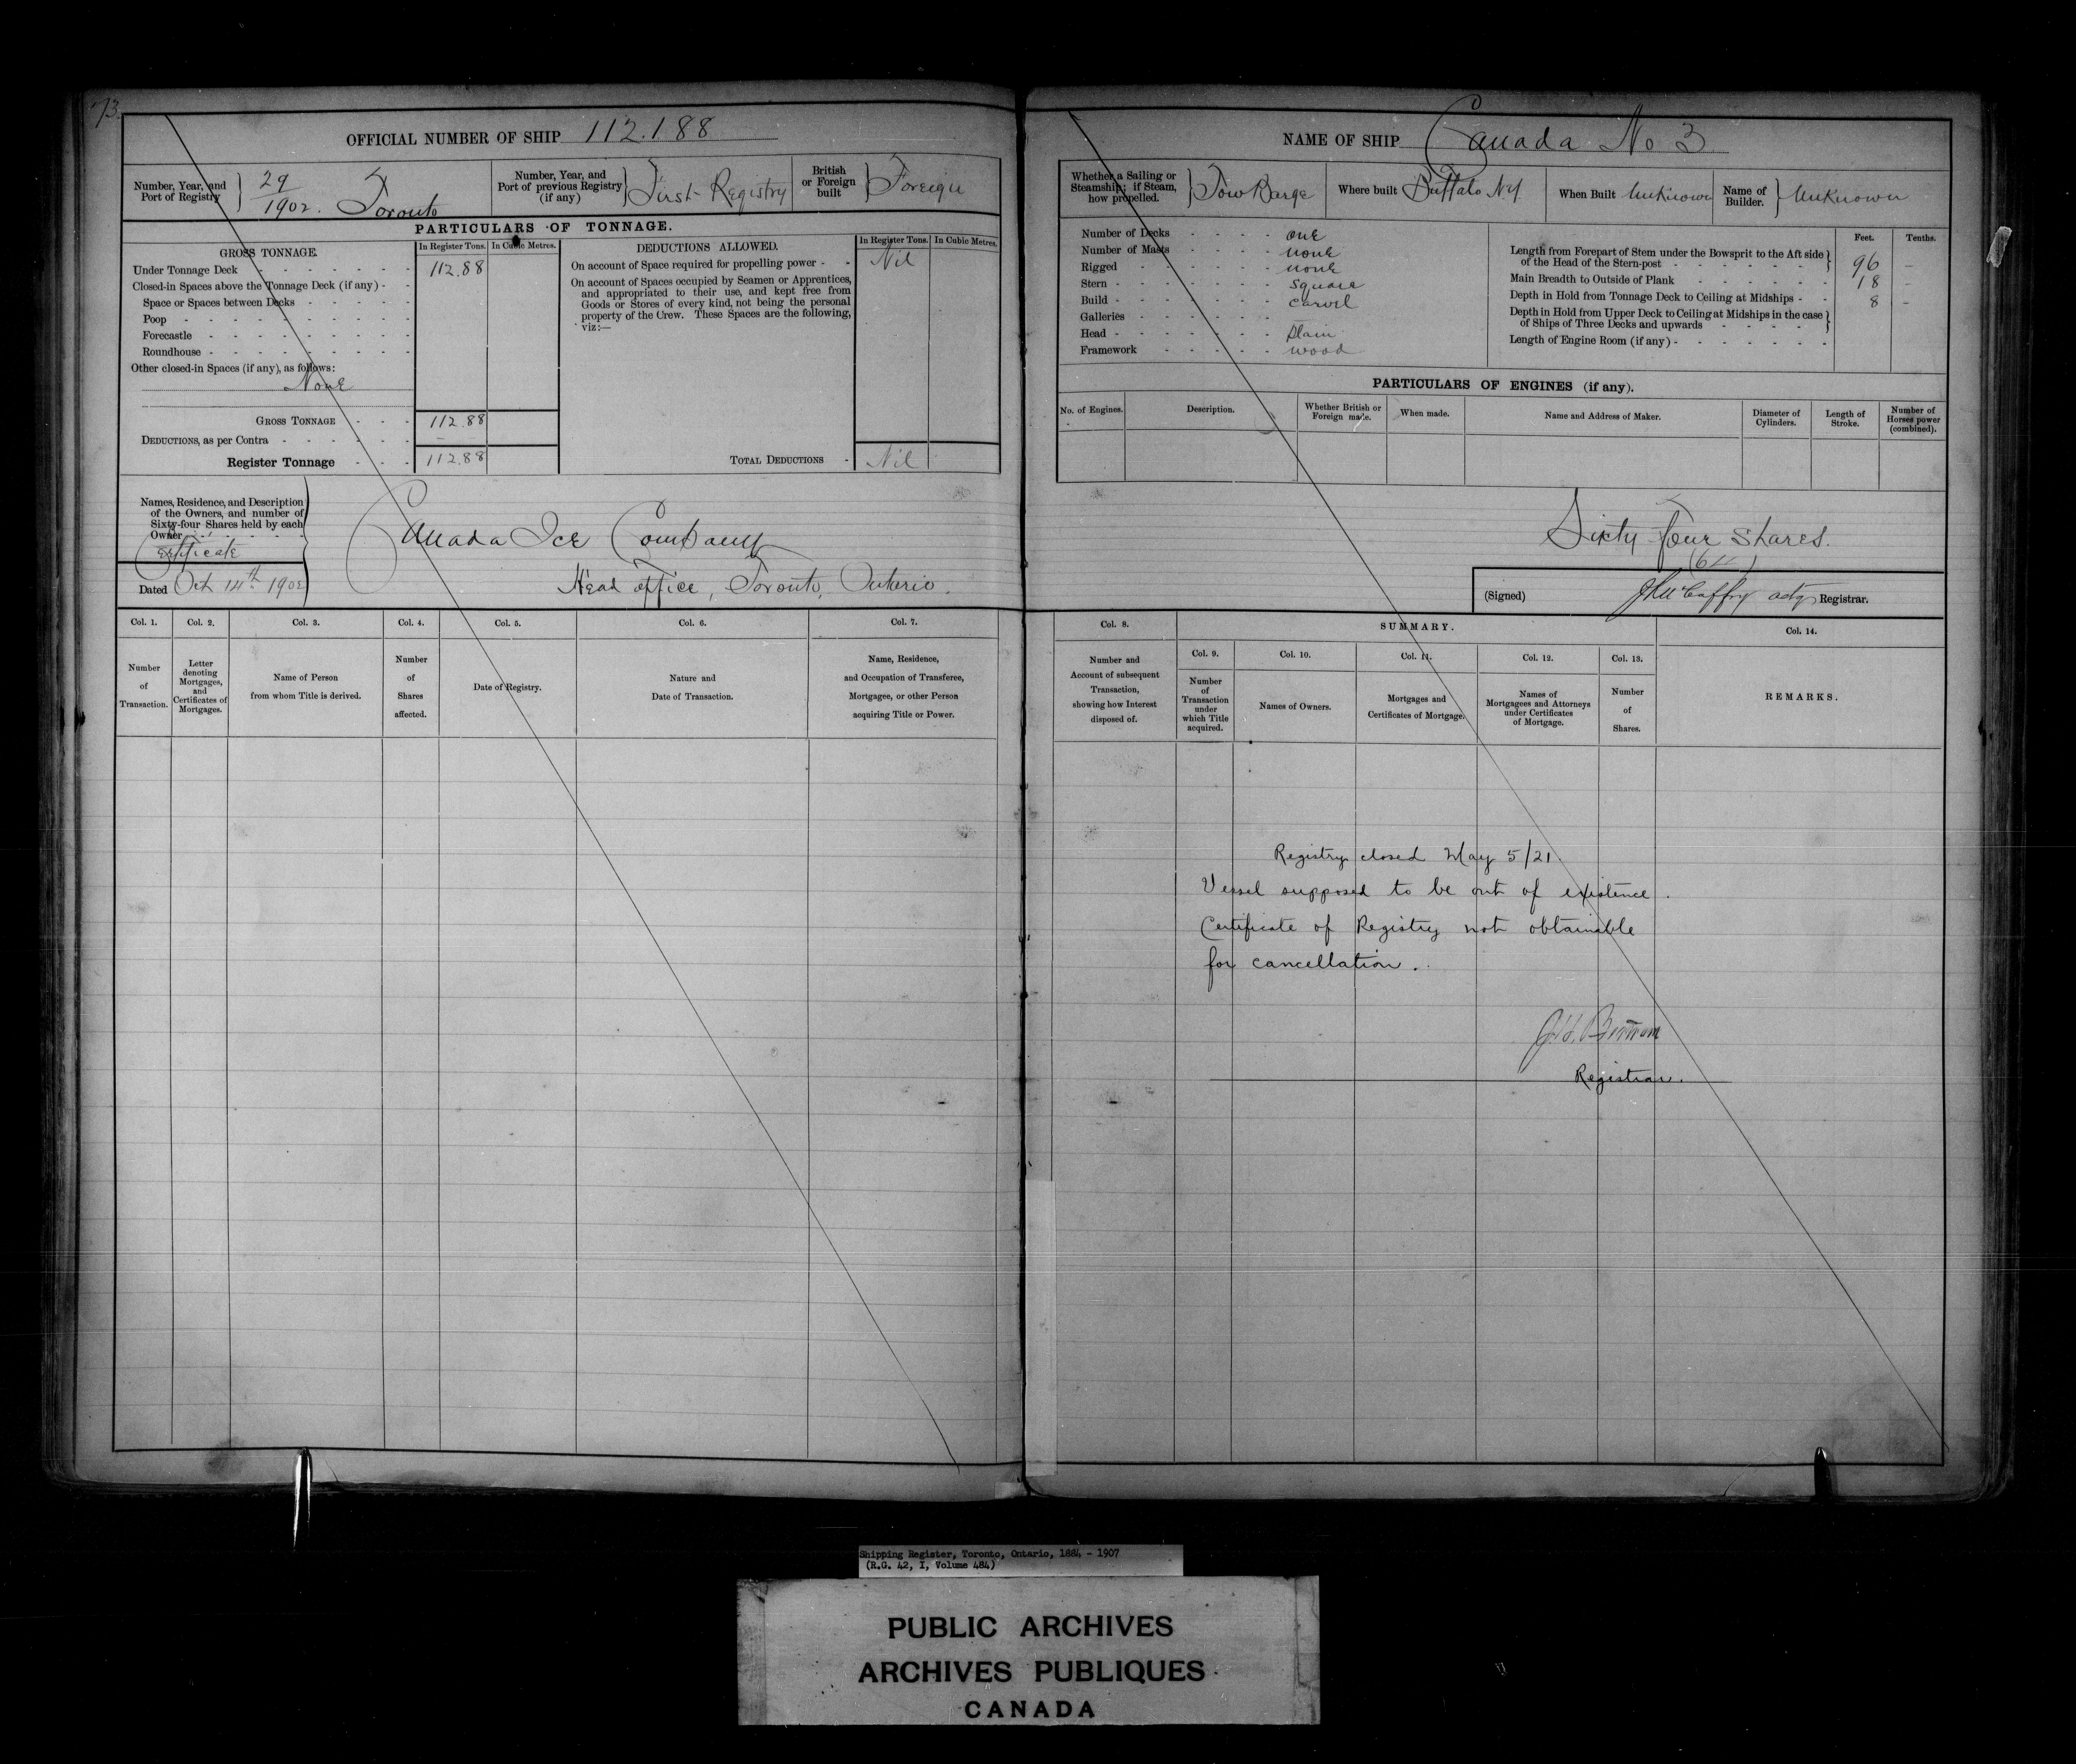 73.
OFFICIAL NUMBER OF SHIP 112.188
Number, Year, and Port of Registry } 29/1902. Toronto
Number, Year, and Port of previous Registry (if any) } First Registry
British or Foreign built } Foreign
PARTICULARS OF TONNAGE.
GROSS TONNAGE.
In Register Tons. In Cubic Metres.
Under Tonnage Deck - - - - - - 112.88
Closed-in Spaces above the Tonnage Deck (if any) - -
Space or Spaces between Decks - - - - -
Poop - - - - - - - - -
Forecastle - - - - - - - -
Roundhouse - - - - - - - -
Other closed-in Spaces (if any), as follows:
None
GROSS TONNAGE - - - 112.88
DEDUCTIONS, as per Contra - - - - - - –
Register Tonnage - - - 112.88
DEDUCTIONS ALLOWED.
In Register Tons. In Cubic Metres.
On account of Space required for propelling power - - Nil
On account of Spaces occupied by Seamen or Apprentices,
and appropriated to their use, and kept free from
Goods or Stores of every kind, not being the personal
property of the Crew. These Spaces are the following,
viz:—
TOTAL DEDUCTIONS - Nil
Names, Residence, and Description
of the Owners, and number of
Sixty-four Shares held by each
Owner - - - - -
Certificate
Dated Oct 14th 1902
Canada Ice Company
Head office, Toronto, Ontario.
Col. 1. Col. 2. Col. 3. Col. 4. Col. 5. Col. 6. Col. 7.
Number of Transaction.
Letter denoting Mortgages, and Certificates of Mortgages.
Name of Person from whom Title is derived.
Number of Shares affected.
Date of Registry.
Nature and Date of Transaction.
Name, Residence, and Occupation of Transferee, Mortgagee, or other Person acquiring Title or Power.
NAME OF SHIP Canada No 3
Whether a Sailing or Steamship; if Steam, how propelled. } Tow Barge
Where built Buffalo N.Y.
When Built Unknown
Name of Builder. } Unknown
Number of Decks - - - - one
Number of Masts - - - - none
Rigged - - - - - - none
Stern - - - - - - square
Build - - - - - - carvel
Galleries - - - - - –
Head - - - - - - plain
Framework - - - - - wood
Feet. Tenths.
Length from Forepart of Stem under the Bowsprit to the Aft side
of the Head of the Stern-post - - - - - - } 96 –
Main Breadth to Outside of Plank - - - - - - 18 –
Depth in Hold from Tonnage Deck to Ceiling at Midships - - 8 –
Depth in Hold from Upper Deck to Ceiling at Midships in the case
of Ships of Three Decks and upwards - - - - }
Length of Engine Room (if any) - - - - - - -
PARTICULARS OF ENGINES (if any).
No. of Engines. Description. Whether British or Foreign made. When made. Name and Address of Maker. Diameter of Cylinders. Length of Stroke. Number of Horses power (combined).
Sixty four shares.
(64)
(Signed) J McCaffry actg Registrar.
Col. 8. SUMMARY. Col. 14.
Col. 9. Col. 10. Col. 11. Col. 12. Col. 13.
Number and Account of subsequent Transaction, showing how Interest disposed of.
Number of Transaction under which Title acquired.
Names of Owners.
Mortgages and Certificates of Mortgage.
Names of Mortgagees and Attorneys under Certificates of Mortgage.
Number of Shares.
REMARKS.
Registry closed May 5/21.
Vessel supposed to be out of existence.
Certificate of Registry not obtainable
for cancellation.
J.H. Bertram
Registrar.
Shipping Register, Toronto, Ontario, 1884 - 1907
(R.G. 42, I, Volume 484)
PUBLIC ARCHIVES
ARCHIVES PUBLIQUES
CANADA